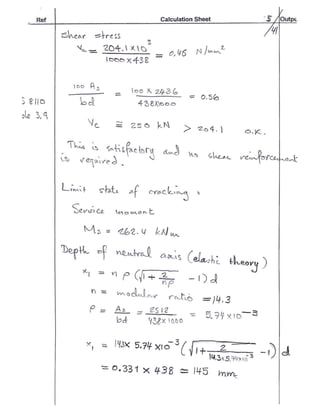 Ref Calculation Sheet 5 Outpu
/41
Shear stress
V = 204.1 x 10³ / 1000 x 438 = 0.46 N/mm²
100 As / bd = 100 x 2436 / 438x1000 = 0.56
S 8110
ble 3.9
Vc ≅ 250 kN > 204.1 O.K.
This is satisfactory and no shear reinforcement
is required.
Limit state of cracking :
Service moment
Ms = 262.4 kNm
Depth of neutral axis (elastic theory)
x₁ = n ρ (√(1 + 2/nρ) - 1) d
n = modular ratio = 14.3
ρ = As / bd = 2512 / 438 x 1000 = 5.74 x 10⁻³
x₁ = 14.3 x 5.74 x 10⁻³ (√(1 + 2 / 14.3 x 5.74 x 10⁻³) - 1) d
= 0.331 x 438 = 145 mm